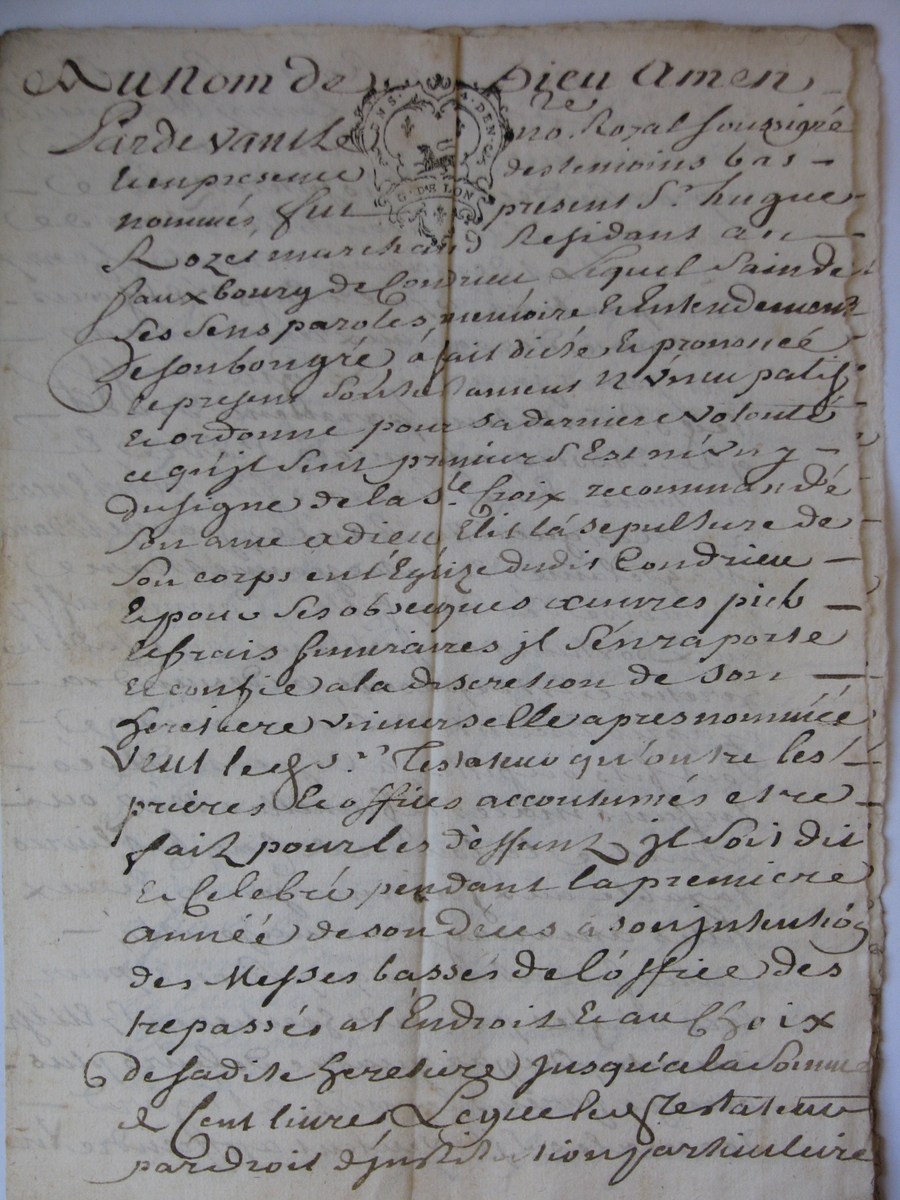 Au Nom de Dieu Amen
Pardevant le no.re Royal soussigné
& en presence des temoins bas
nommés, fut present Sr. hugue
Rozet marchand Residant au
fauxbourg de Condrieu Lequel Sain de
ses sens paroles, memoire & Entendement
de son bon gré à fait dicté & prononcé
le present Son testament Nuncupatif
& ordonné pour sa derniere volonté
ce qu'jl suit premiers Est muny
du signe de la Ste. Croix recommandé
son ame a dieu Elit la sepulture de
son corps en l'Eglize dudit Condrieu
& pour ses obseques œuvres pies
& frais funeraires jl s'en raporte
& confie a la discretion de son
heretiere universelle apres nommée
veut led. sr. Testateur qu'outre les
prieres & offices accoutumés etre
fait pour les deffunt jl soit dit
& Celebré pendant la premiere
année de son deces a son jntention
des Messes basses de l'office des
trepassés a l'Endroit & au Choix
de sadite heretiere jusqu'a la somme
de Cent livres Lequel testateur
par droit d'jnstitution particuliere
A DENIERS
G. DE LION